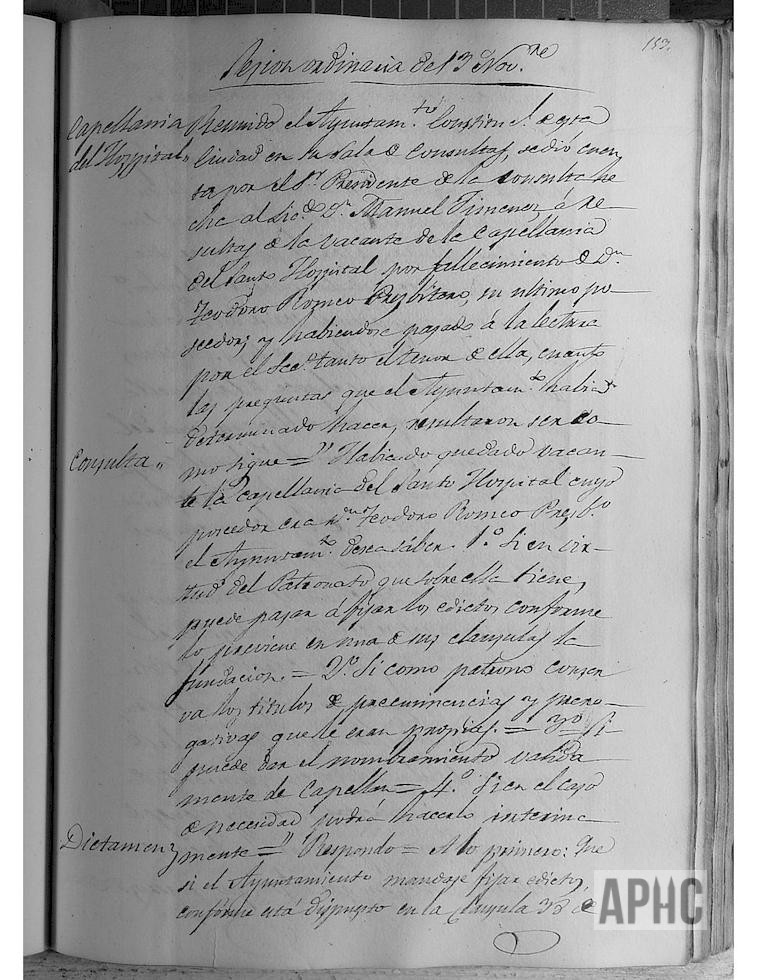 153.
Sesion ordinaria del 13 Nov.re
Capellania
del Hospital
Reunido el Ayuntam.to Constion.l de esta
Ciudad en su sala de Consultas, se dió cuen
ta por el S.r Presidente de la consulta he
cha al Lic.do D.n Manuel Timenez, á re-
sultas de la vacante de la Capellania
del Santo Hospital por fallecimiento de D.n
Teodoro Romeo Presbitero, su ultimo po-
seedor; y habiendose pasado á la lectura
por el Sec.o tanto el tenor de ella, cuanto
las preguntas que el Ayuntam.to habia
determinado hacer, resultaron ser co-
mo sigue = "Habiendo quedado vacan-
Consulta "
te la Capellania del Santo Hospital cuyo
poseedor era D.n Teodoro Romeo Presb.o
el Ayuntam.to desea sáber. 1.o Si en vir-
tud del Patronato que sobre ella tiene,
puede pasar á fijar los edictos conforme
lo previene en una de sus clausulas la
fundacion. = 2.o Si como patrono conser
va los titulos de preeminencias y prero-
gativas que le eran propias. = 3.o Si
puede dar el nombramiento valida
mente de Capellan = 4.o Si en el caso
de necesidad podrá hacerlo interina
mente =" Respondo = A lo primero: Que
Dictamen
si el Ayuntamiento mandase fijar edictos,
conforme está dispuesto en la Clausula 33 de
APHC